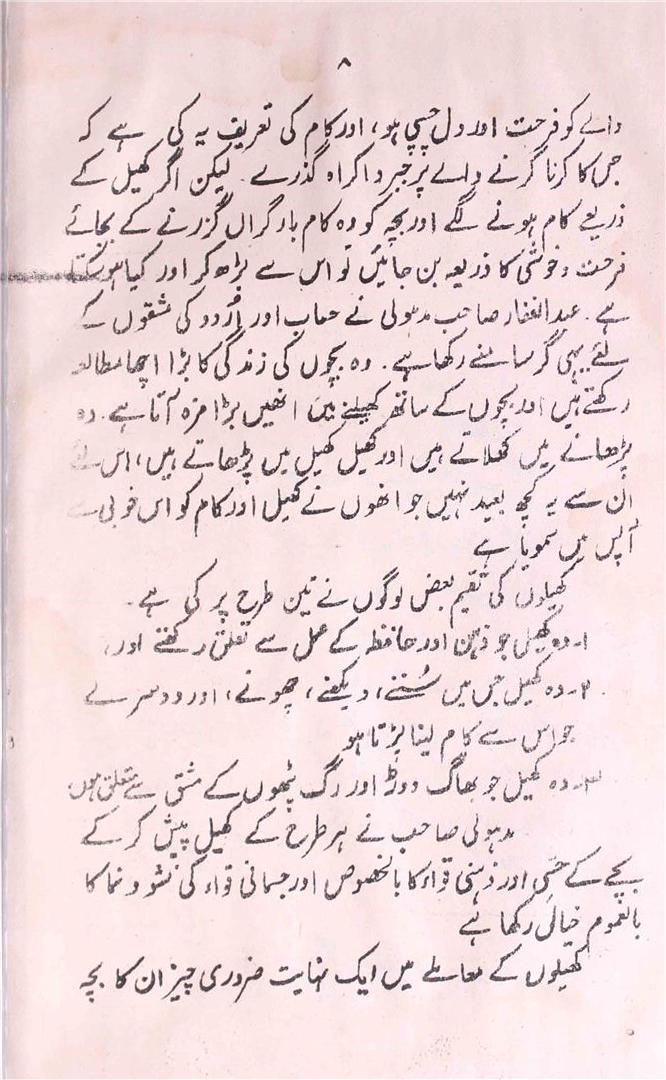 ۸
والے کو فرحت اور دل چسپی ہو، اور کام کی تعریف یہ کی ہے کہ
جس کا کرنا کرنے والے پر جبر و اکراہ گذرے۔ لیکن اگر کھیل کے
ذریعے کام ہونے لگے اور بچہ کو وہ کام بار گراں گزرنے کے بجائے
فرحت و خوشی کا ذریعہ بن جائیں تو اس سے بڑھ کر اور کیا ہو سکتا
ہے۔ عبدالغفار صاحب مدہولی نے حساب اور اُردو کی مشقوں کے
لئے یہی گر سامنے رکھا ہے۔ وہ بچوں کی زندگی کا بڑا اچھا مطالعہ
رکھتے ہیں اور بچوں کے ساتھ کھیلنے میں انھیں بڑا مزہ آتا ہے۔ وہ
پڑھانے میں کھلاتے ہیں اور کھیل کھیل میں پڑھاتے ہیں، اس لئے
ان سے یہ کچھ بعید نہیں جو انھوں نے کھیل اور کام کو اس خوبی سے
آپس میں سمویا ہے
کھیلوں کی تقسیم بعض لوگوں نے تین طرح پر کی ہے۔
۱۔ وہ کھیل جو ذہن اور حافظہ کے عمل سے تعلق رکھتے اور،
۲۔ وہ کھیل جس میں سُننے، دیکھنے، چھونے، اور دوسرے
حواس سے کام لینا پڑتا ہو
۳۔ وہ کھیل جو بھاگ دوڑ اور رگ پٹھوں کے مشق سے متعلق ہوں
مدہولی صاحب نے ہر طرح کے کھیل پیش کر کے
بچے کے حسّی اور ذہنی قواء کا بالخصوص اور جسمانی قواء کی نشو و نما کا
بالعموم خیال رکھا ہے
کھیلوں کے معاملے میں ایک نہایت ضروری چیز ان کا بچہ